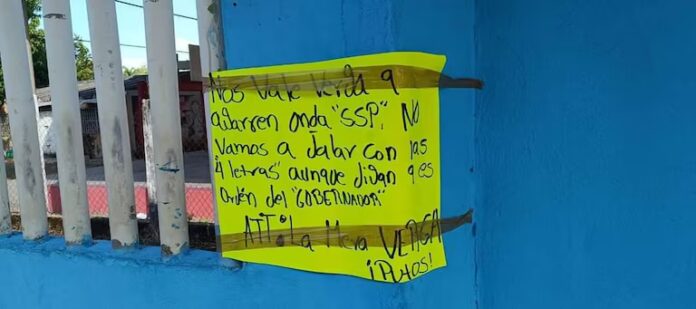 Nos Vale Verda a
agarren onda "SSP". No
Vamos a Jalar con las
"4 letras" aunque digan q es
Orden del "GOBERNADOR"
ATT: La Mera VERGA
¡Putos!